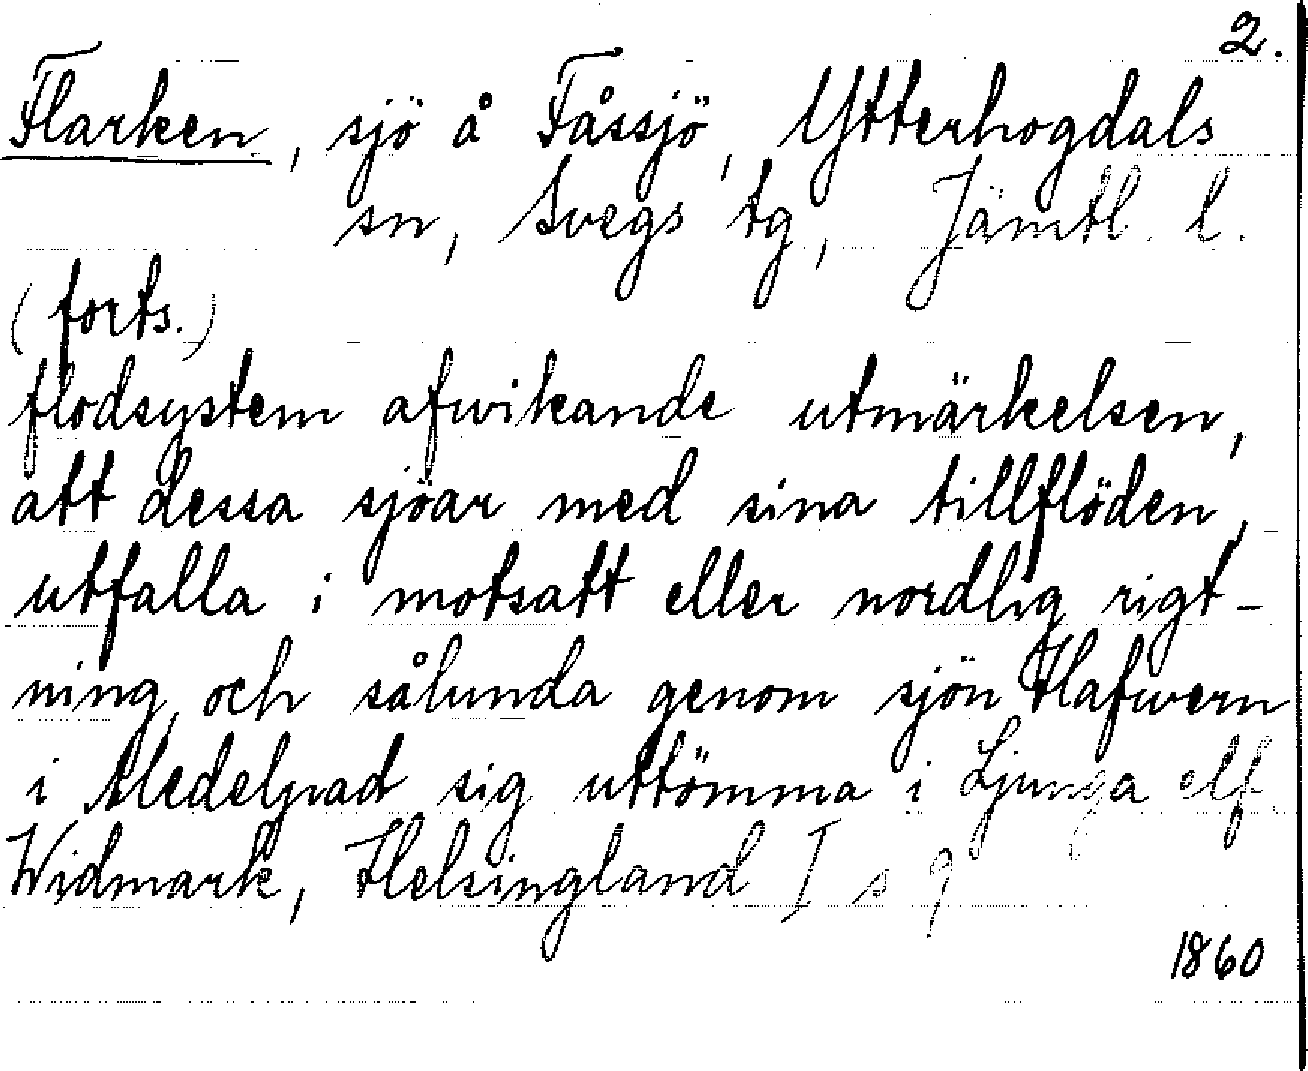 2.
Flarken, sjö å Fåssjö, Ytterhogdals
sn, Svegs tg, Jämtl. l.
(forts.)
flodsystem afwikande utmärkelsen,
att dessa sjöar med sina tillflöden,
utfalla i motsatt eller nordlig rigt-
ning, och sålunda genom sjön Hafwern
i Medelpad sig uttömma i Ljunga elf.
Widmark, Helsingland I s 9
1860